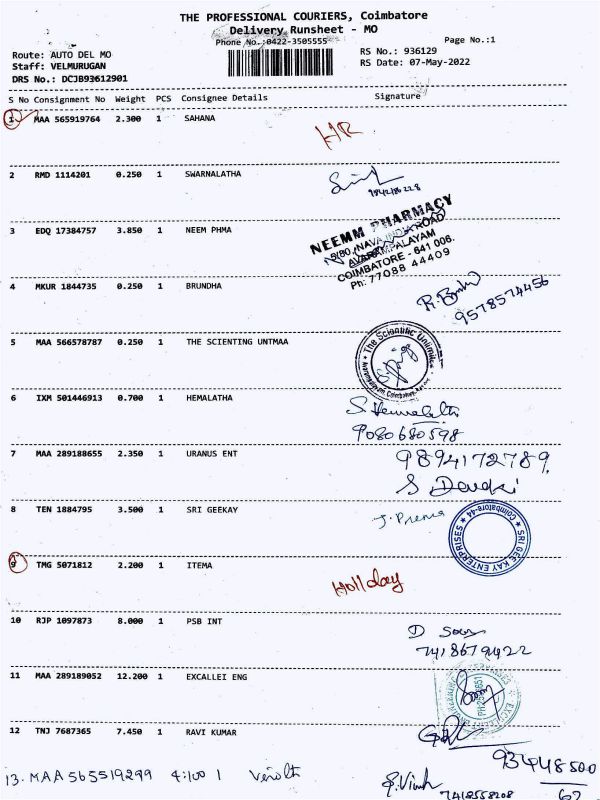 THE PROFESSIONAL COURIERS, Coimbatore
Delivery Runsheet - MO
Phone No.:0422-3505555
Page No.:1
Route: AUTO DEL MO
RS No.: 936129
Staff: VELMURUGAN
RS Date: 07-May-2022
DRS No.: DCJB93612901
S No Consignment No Weight PCS Consignee Details Signature
1 MAA 565919764 2.300 1 SAHANA
HR
2 RMD 1114201 0.250 1 SWARNALATHA
3 EDQ 17384757 3.850 1 NEEM PHMA
NEEMM PHARMACY
5/80, NAVA INDIA ROAD
AVARAMPALAYAM
COIMBATORE - 641 006.
Ph: 77088 44409
4 MKUR 1844735 0.250 1 BRUNDHA
9578574456
5 MAA 566578787 0.250 1 THE SCIENTING UNTMAA
The Scientific Unlimited
6 IXM 501446913 0.700 1 HEMALATHA
S. Hemalatha
9080680598
7 MAA 289188655 2.350 1 URANUS ENT
9894172789
S Devaki
8 TEN 1884795 3.500 1 SRI GEEKAY
J. Prema
SRI GEE KAY ENTERPRISES
Coimbatore-44
9 TMG 5071812 2.200 1 ITEMA
Holiday
10 RJP 1097873 8.000 1 PSB INT
7418679422
11 MAA 289189052 12.200 1 EXCALLEI ENG
12 TNJ 7687365 7.450 1 RAVI KUMAR
93448500
62
13. MAA 565519299 4.100 1
7418558208